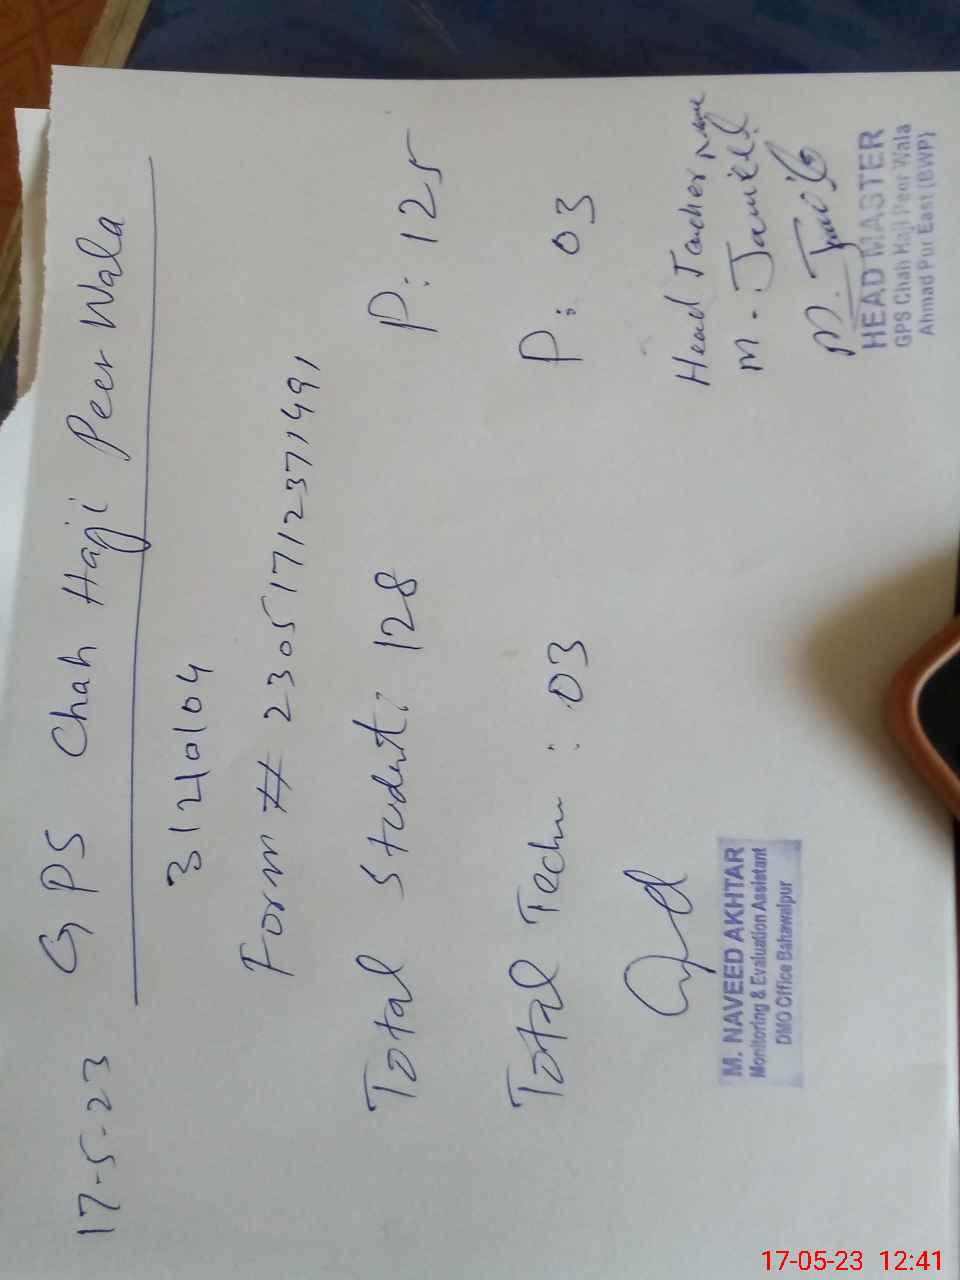 17-5-23 GPS Chah Haji Peer Wala
31210104
Form # 23051712371491
Total Student: 128 P: 125
Total Tech : 03 P: 03
Head Teacher Name
M. Jameel
M. NAVEED AKHTAR
Monitoring & Evaluation Assistant
DMO Office Bahawalpur
HEAD MASTER
GPS Chah Haji Peer Wala
Ahmad Pur East (BWP)
17-05-23 12:41